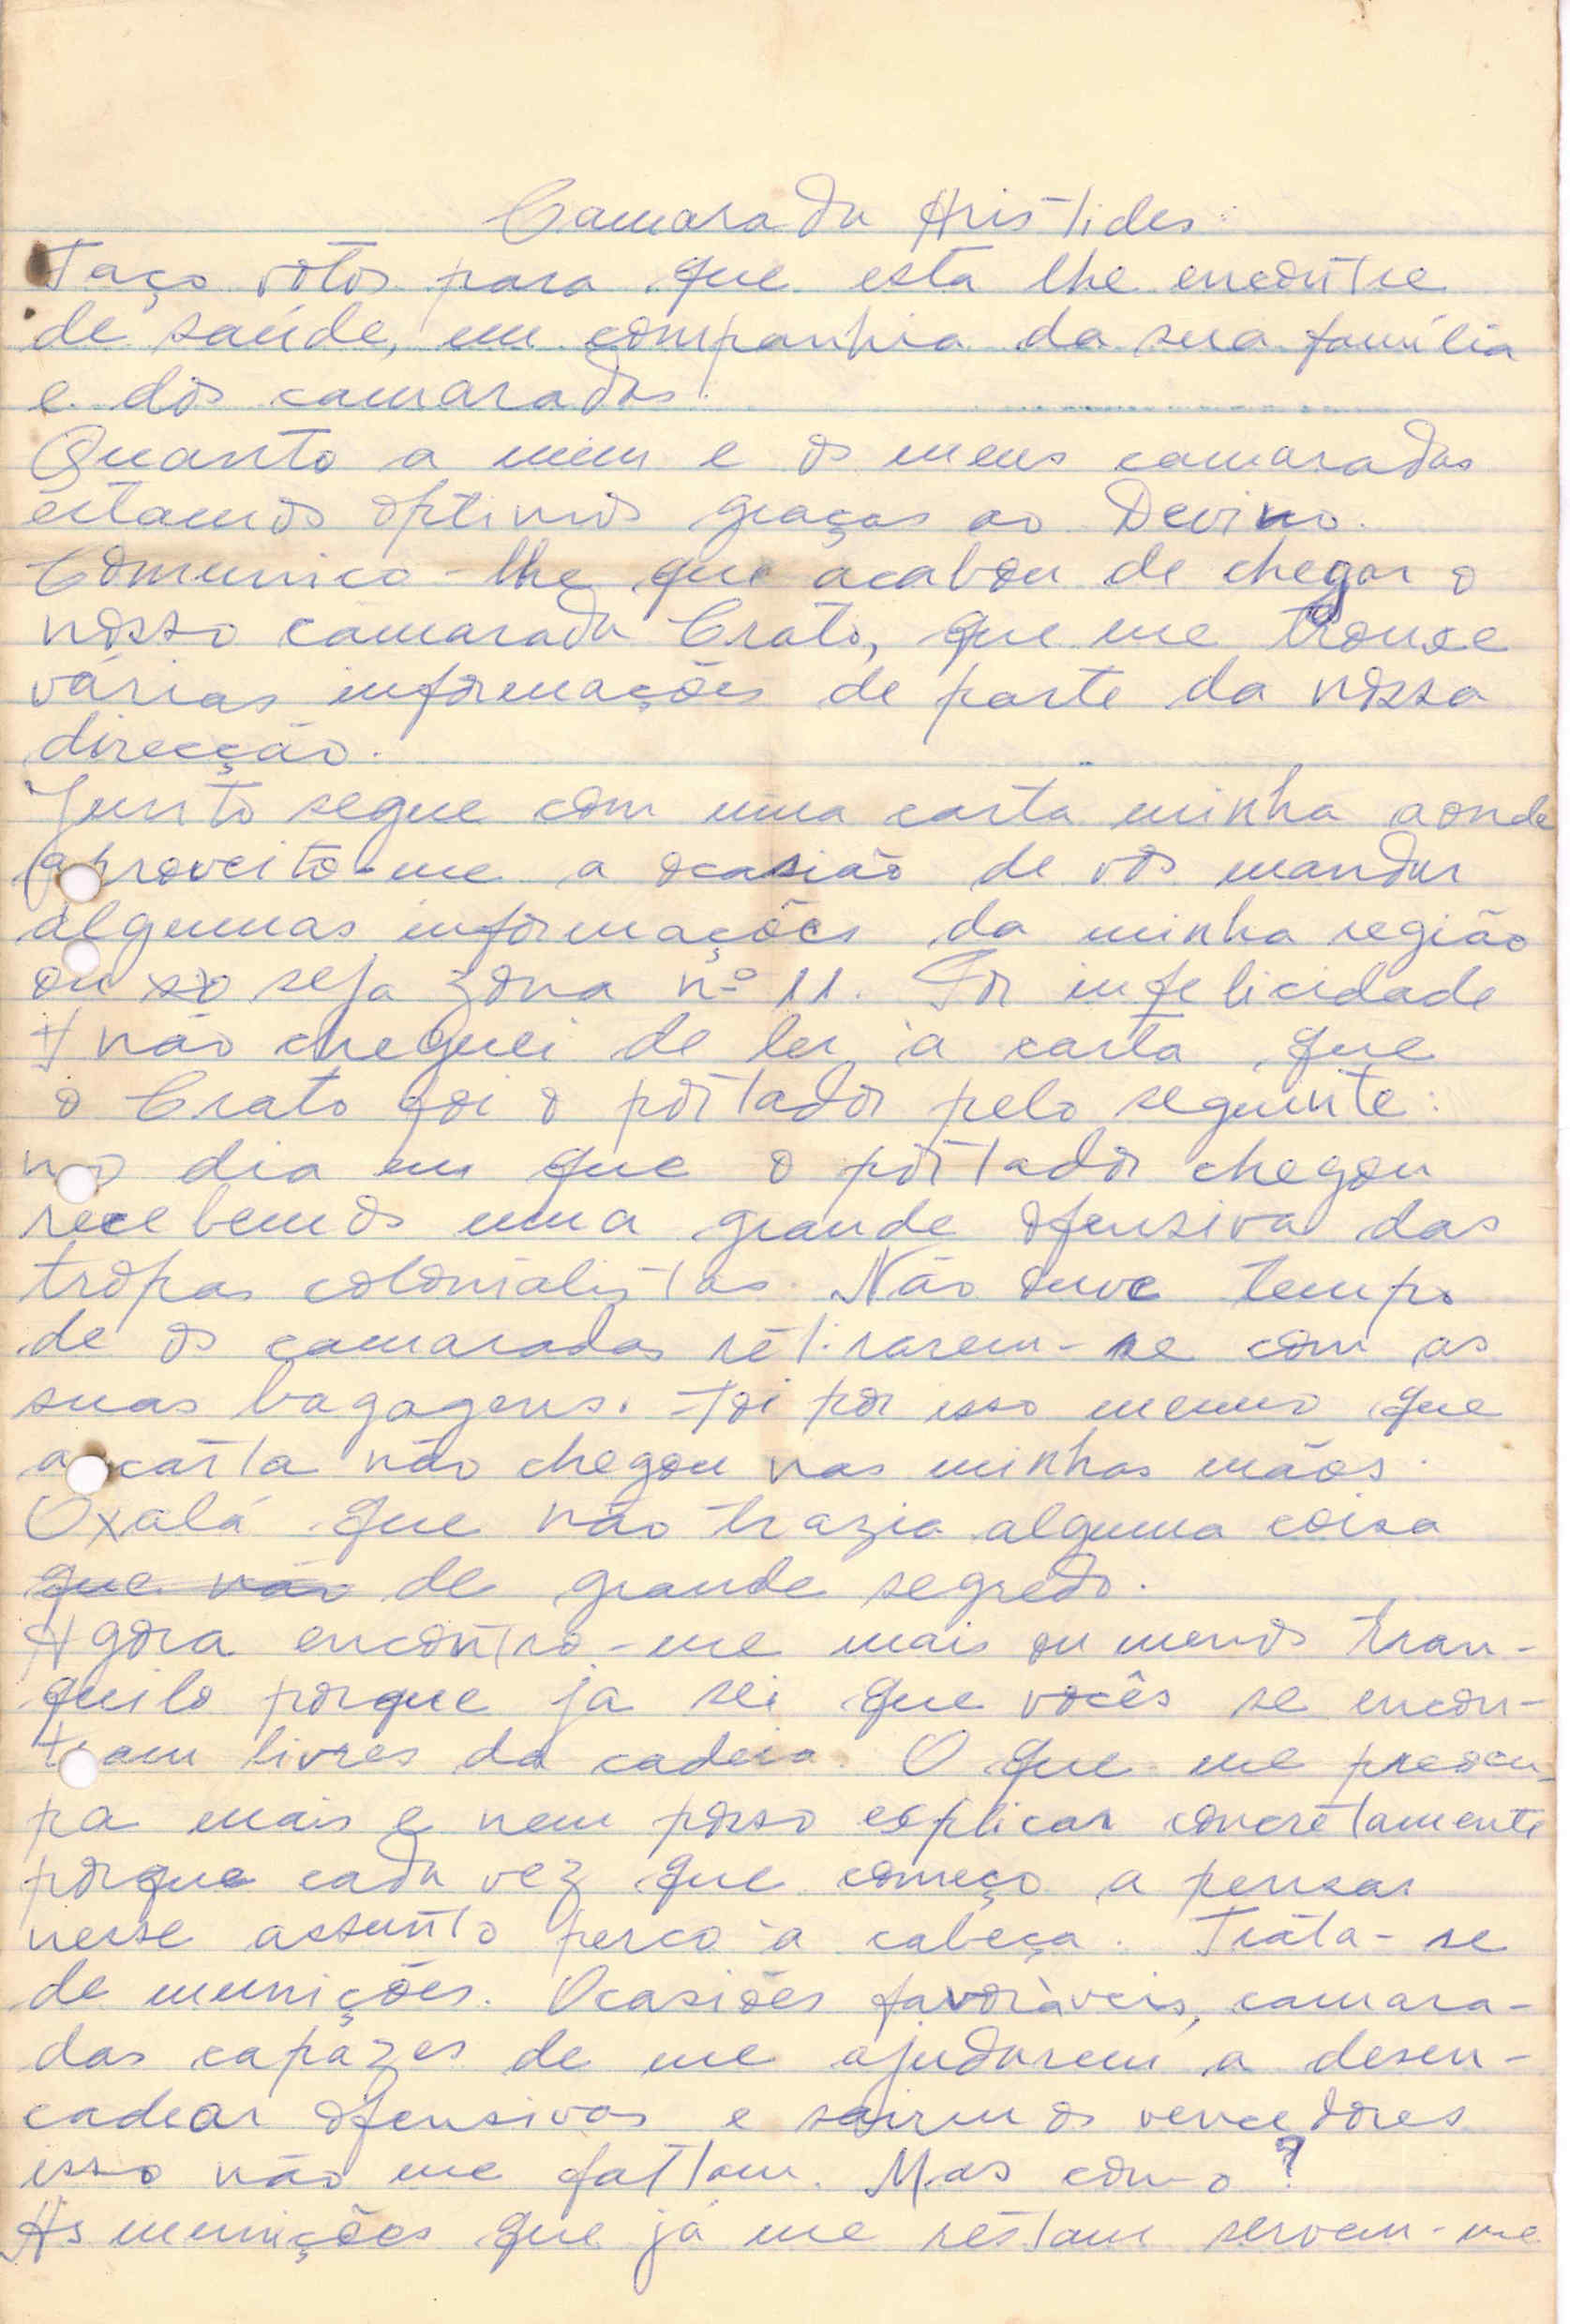 Camarada Aristides:
Faço votos para que esta lhe encontre
de saúde, em companhia da sua família
e dos camaradas.
Quanto a mim e os meus camaradas
estamos optimos graças ao Devino.
Comunico-lhe que acabou de chegar o
nosso camarada Crato, que me trouxe
várias informações de parte da nossa
direcção.
Junto segue com uma carta minha aonde
aproveito-me a ocasião de vos mandar
algumas informações da minha região
ou so seja zona nº 11. Por infelicidade
não cheguei de ler a carta que
o Crato foi o portador pelo seguinte:
no dia em que o portador chegou
recebemos uma grande ofensiva das
tropas colonialistas. Não ouve tempo
de os camaradas retirarem-se com as
suas bagagens. Foi por isso mesmo que
a carta não chegou nas minhas mãos.
Oxalá que não trazia alguma coisa
que não de grande segredo.
Agora encontro-me mais ou menos tran-
quilo porque ja sei que vocês se encon-
tram livres da cadeia. O que me preocu-
pa mais e nem posso explicar concretamente
porque cada vez que começo a pensar
nesse assunto perco a cabeça. Trata-se
de munições. Ocasiões favoràveis, camara-
das capázes de me ajudarem a desen-
cadear ofensivas e sairmos vencedores
isso não me faltam. Mas como?
As munições que já me restam servem-me